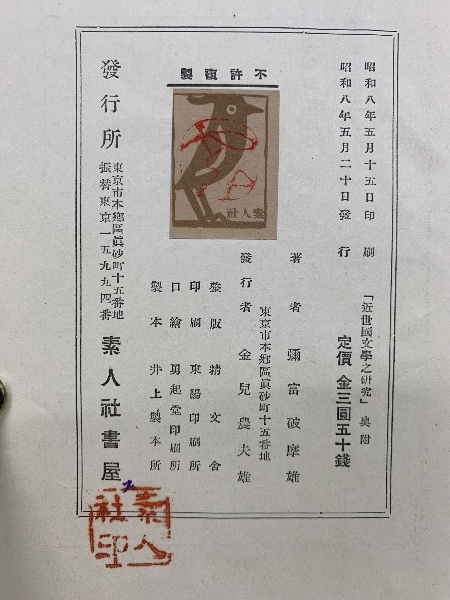 昭和八年五月十五日印刷
昭和八年五月二十日發行
「近世國文學之研究」奥附
定價金三圓五十錢
不許復製
素人社
著者 彌富破摩雄
東京市本鄕區眞砂町十五番地
發行者 金兒農夫雄
整版 精文舍
印刷 東陽印刷所
口繪 勇起堂印刷所
製本 井上製本所
發行所
東京市本鄕區眞砂町十五番地
振替東京一五九九四番
素人社書屋
素人社印